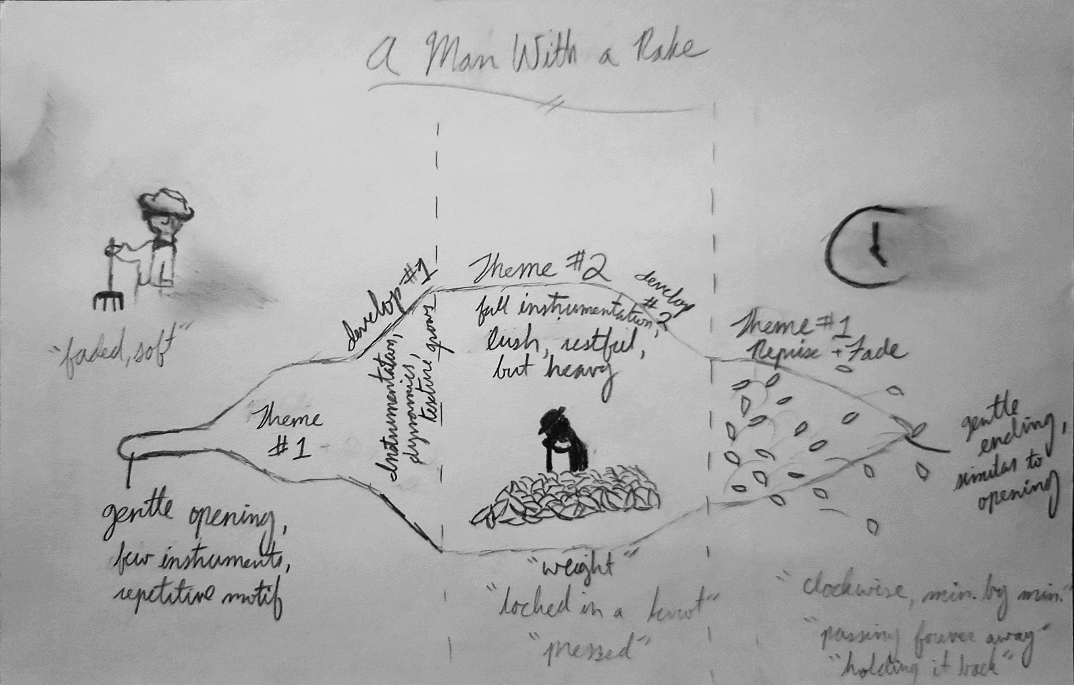 A Man With a Rake
"faded, soft"
Theme
#1
gentle opening,
few instruments,
repetitive motif
develop #1
Instrumentation,
dynamics,
texture grows
Theme #2
full instrumentation,
lush, restful,
but heavy
develop
#2
"weight"
"locked in a knot"
"pressed"
Theme #1
Reprise + Fade
gentle
ending,
similar to
opening
"clockwise, min. by min."
"passing forever away"
"holding it back"